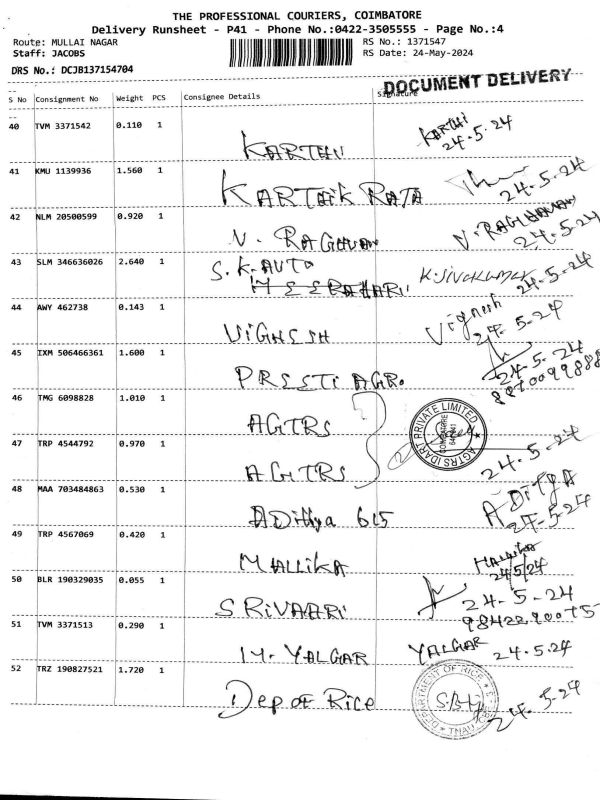 THE PROFESSIONAL COURIERS, COIMBATORE
Delivery Runsheet - P41 - Phone No.:0422-3505555 - Page No.:4
Route: MULLAI NAGAR RS No.: 1371547
Staff: JACOBS RS Date: 24-May-2024
DRS No.: DCJB137154704
DOCUMENT DELIVERY
S No Consignment No Weight PCS Consignee Details Signature
40 TVM 3371542 0.110 1 KARTHI 24.5.24
41 KMU 1139936 1.560 1 KARTHIK RAJA 24.5.24
42 NLM 20500599 0.920 1 V. RAGHUVAN V. RAGHUVAN 24.5.24
43 SLM 346636026 2.640 1 S.K. AUTO 24.5.24
44 AWY 462738 0.143 1 VIGHESH Vignesh 24.5.24
45 IXM 506466361 1.600 1 PRESTI AGR. 24.5.24
46 TMG 6098828 1.010 1 AGITRS
AGTRS IDART PRIVATE LIMITED
COIMBATORE
47 TRP 4544792 0.970 1 AGITRS 24.5.24
48 MAA 703484863 0.530 1 ADithya 615 ADITYA 24.5.24
49 TRP 4567069 0.420 1 MALLIKA MALLIKA 24/5/24
50 BLR 190329035 0.055 1 SRIVAARI 24.5.24
51 TVM 3371513 0.290 1 M. YALGAR YALGAR 24.5.24
52 TRZ 190827521 1.720 1 Dep of Rice 24.5.24
DEPARTMENT OF RICE
TNAU